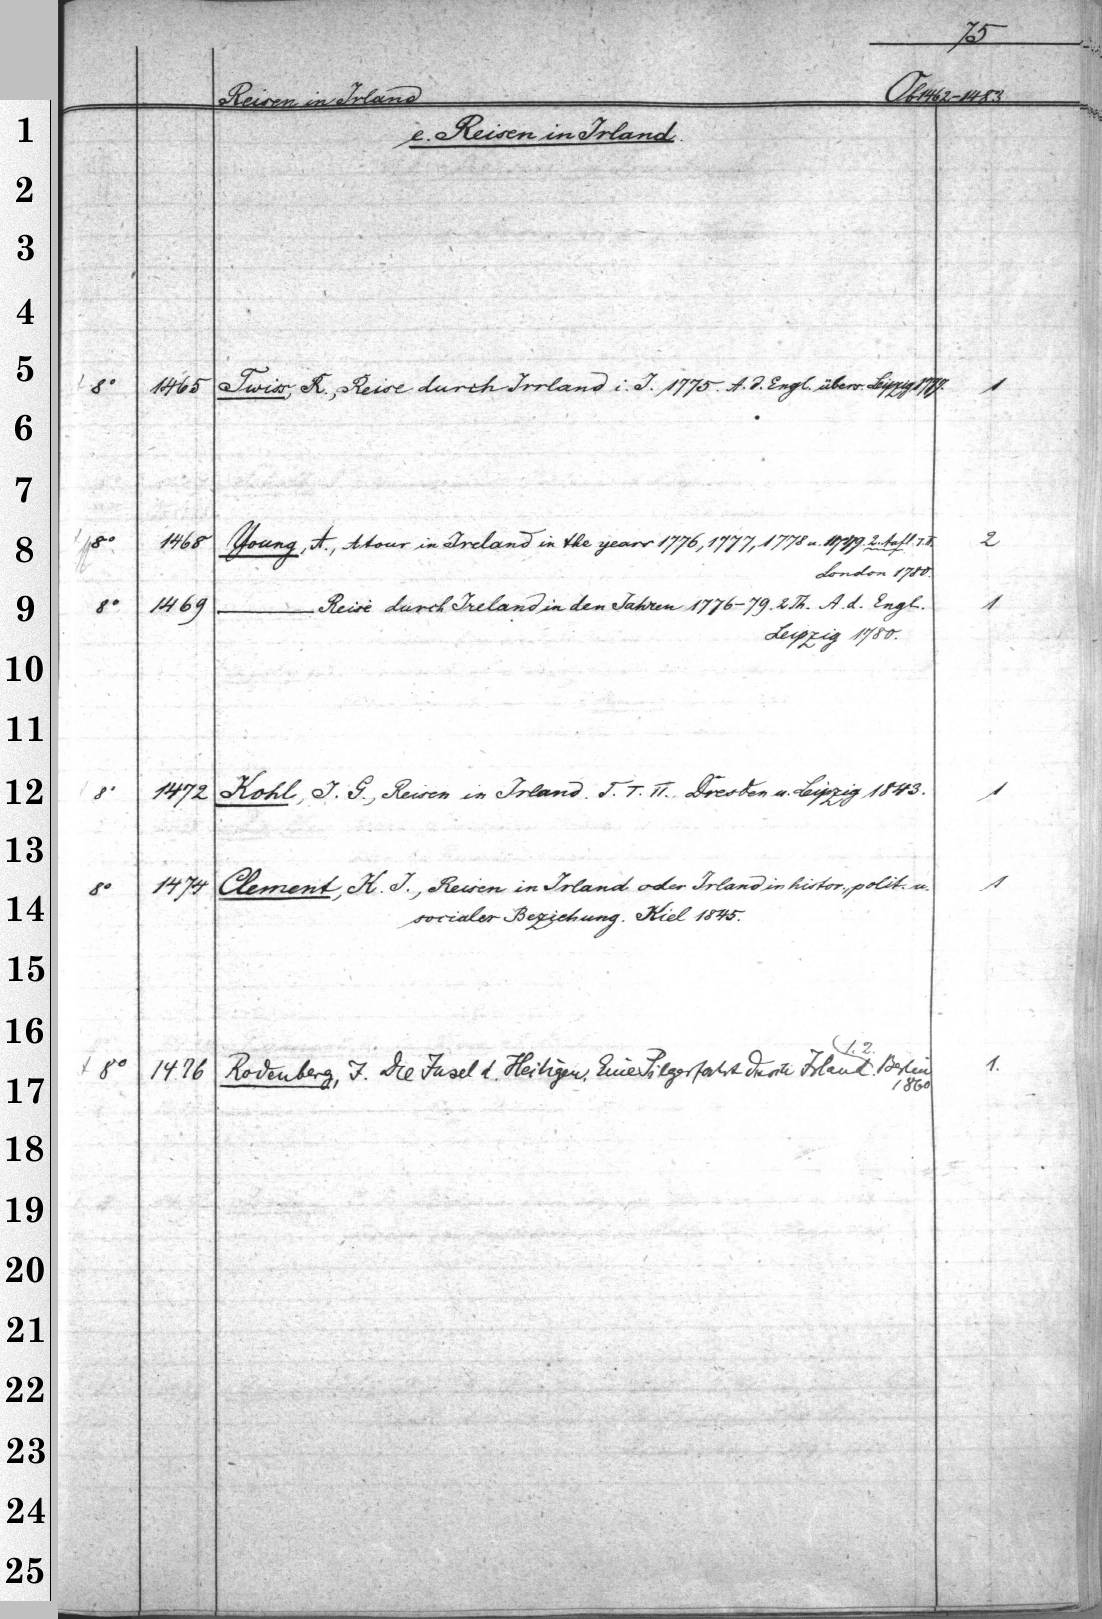 75
Reisen in Irland Ob 1462-1483
e. Reisen in Irland.
8° 1465 Twiss, R., Reise durch Irrland i. J. 1775. A. d. Engl. übers. Leipzig 1777. 1
8° 1468 Young, A., A tour in Ireland in the years 1776, 1777, 1778 u. 1779. 2. Aufl.
London 1780. 2
8° 1469 ——— Reise durch Ireland in den Jahren 1776-79. 2 Th. A. d. Engl. 1
Leipzig 1780.
8° 1472 Kohl, J. G., Reisen in Irland. T. I. II. Dresden u. Leipzig 1843. 1
8° 1474 Clement, K. J., Reisen in Irland oder Irland in histor., polit. u. 1
socialer Beziehung. Kiel 1845.
1. 2.
8° 1476 Rodenberg, J. Die Insel d. Heiligen. Eine Pilgerfahrt durch Irland. Berlin 1.
1860
1
2
3
4
5
6
7
8
9
10
11
12
13
14
15
16
17
18
19
20
21
22
23
24
25